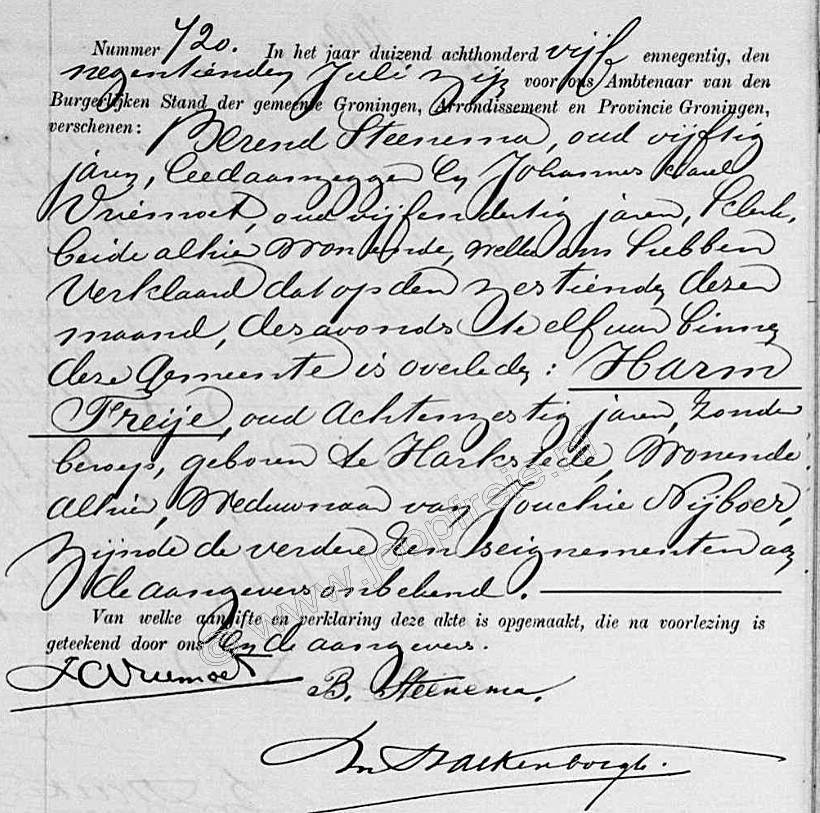 Nummer 720. In het jaar duizend achthonderd vijf ennegentig, den
negentienden Juli zijn voor ons Ambtenaar van den
Burgerlijken Stand der gemeente Groningen, Arrondissement en Provincie Groningen,
verschenen: Berend Steenema, oud vijftig
jaren, leedaanzegger en Johannes Carel
Vriemoet, oud vijfendertig jaren, klerk,
beide alhier wonende, welke ons hebben
verklaard dat op den zestienden dezer
maand, des avonds te elf uur binnen
deze Gemeente is overleden: Harm
Freije, oud achtenzestig jaren, zonder
beroep, geboren te Harkstede, wonende
alhier, Weduwnaar van Jouchie Nijboer,
zijnde de verdere renseignementen aan
de aangevers onbekend.
Van welke aangifte en verklaring deze akte is opgemaakt, die na voorlezing is
geteekend door ons en de aangevers.
JCVriemoet
B. Steenema.
© www.joopfreije.nl